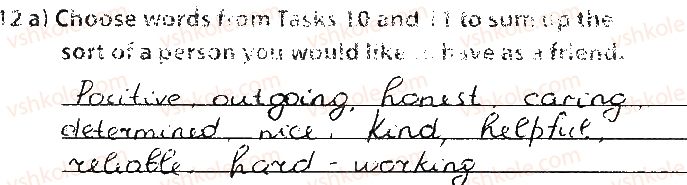 12 a) Choose words from Tasks 10 and 11 to sum up the
sort of a person you would like to have as a friend.
Positive, outgoing, honest, caring,
determined, nice, kind, helpful,
reliable, hard-working